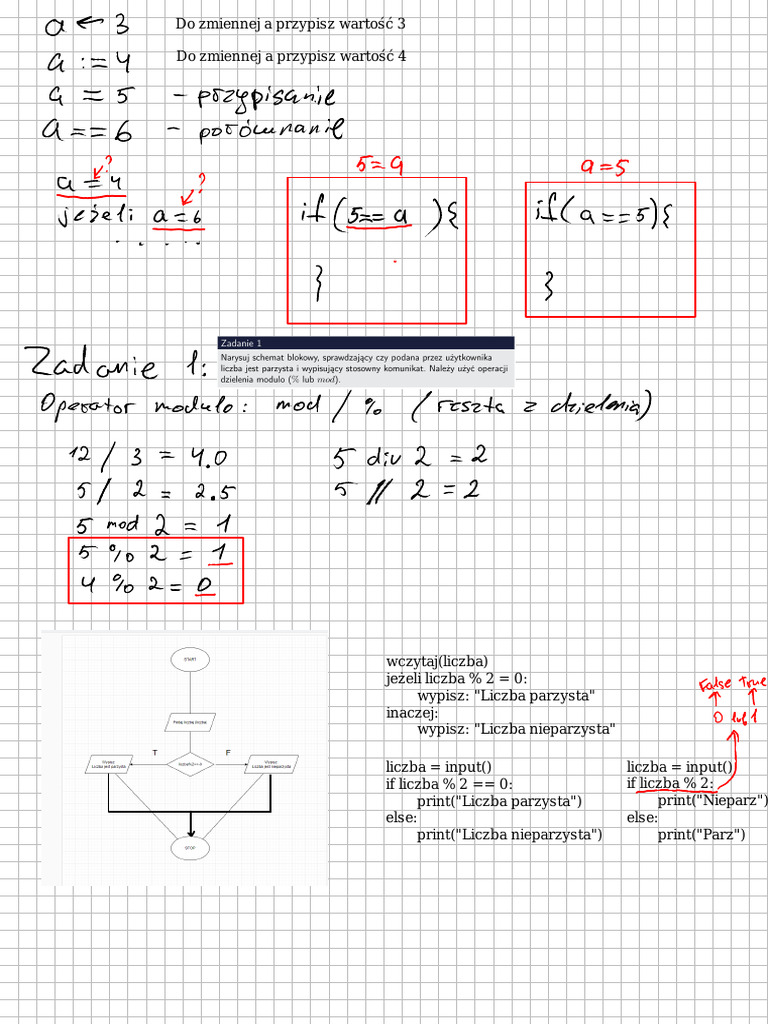 a ← 3 Do zmiennej a przypisz wartość 3
a := 4 Do zmiennej a przypisz wartość 4
a = 5 - przypisanie
a == 6 - porównanie
?
a = 4
?
jeżeli a = 6
. . . . .
5 = a
if (5 == a ){
}
a = 5
if( a == 5){
}
Zadanie 1:
Zadanie 1
Narysuj schemat blokowy, sprawdzający czy podana przez użytkownika
liczba jest parzysta i wypisujący stosowny komunikat. Należy użyć operacji
dzielenia modulo (% lub mod).
Operator modulo: mod / % (reszta z dzielenia)
12 / 3 = 4.0
5 / 2 = 2.5
5 mod 2 = 1
5 % 2 = 1
4 % 2 = 0
5 div 2 = 2
5 // 2 = 2
START
T
F
Wypisz:
Liczba jest parzysta
Wypisz:
Liczba jest nieparzysta
STOP
wczytaj(liczba)
jeżeli liczba % 2 = 0:
wypisz: "Liczba parzysta"
inaczej:
wypisz: "Liczba nieparzysta"
liczba = input()
if liczba % 2 == 0:
print("Liczba parzysta")
else:
print("Liczba nieparzysta")
False True
0 lub 1
liczba = input()
if liczba % 2:
print("Nieparz")
else:
print("Parz")